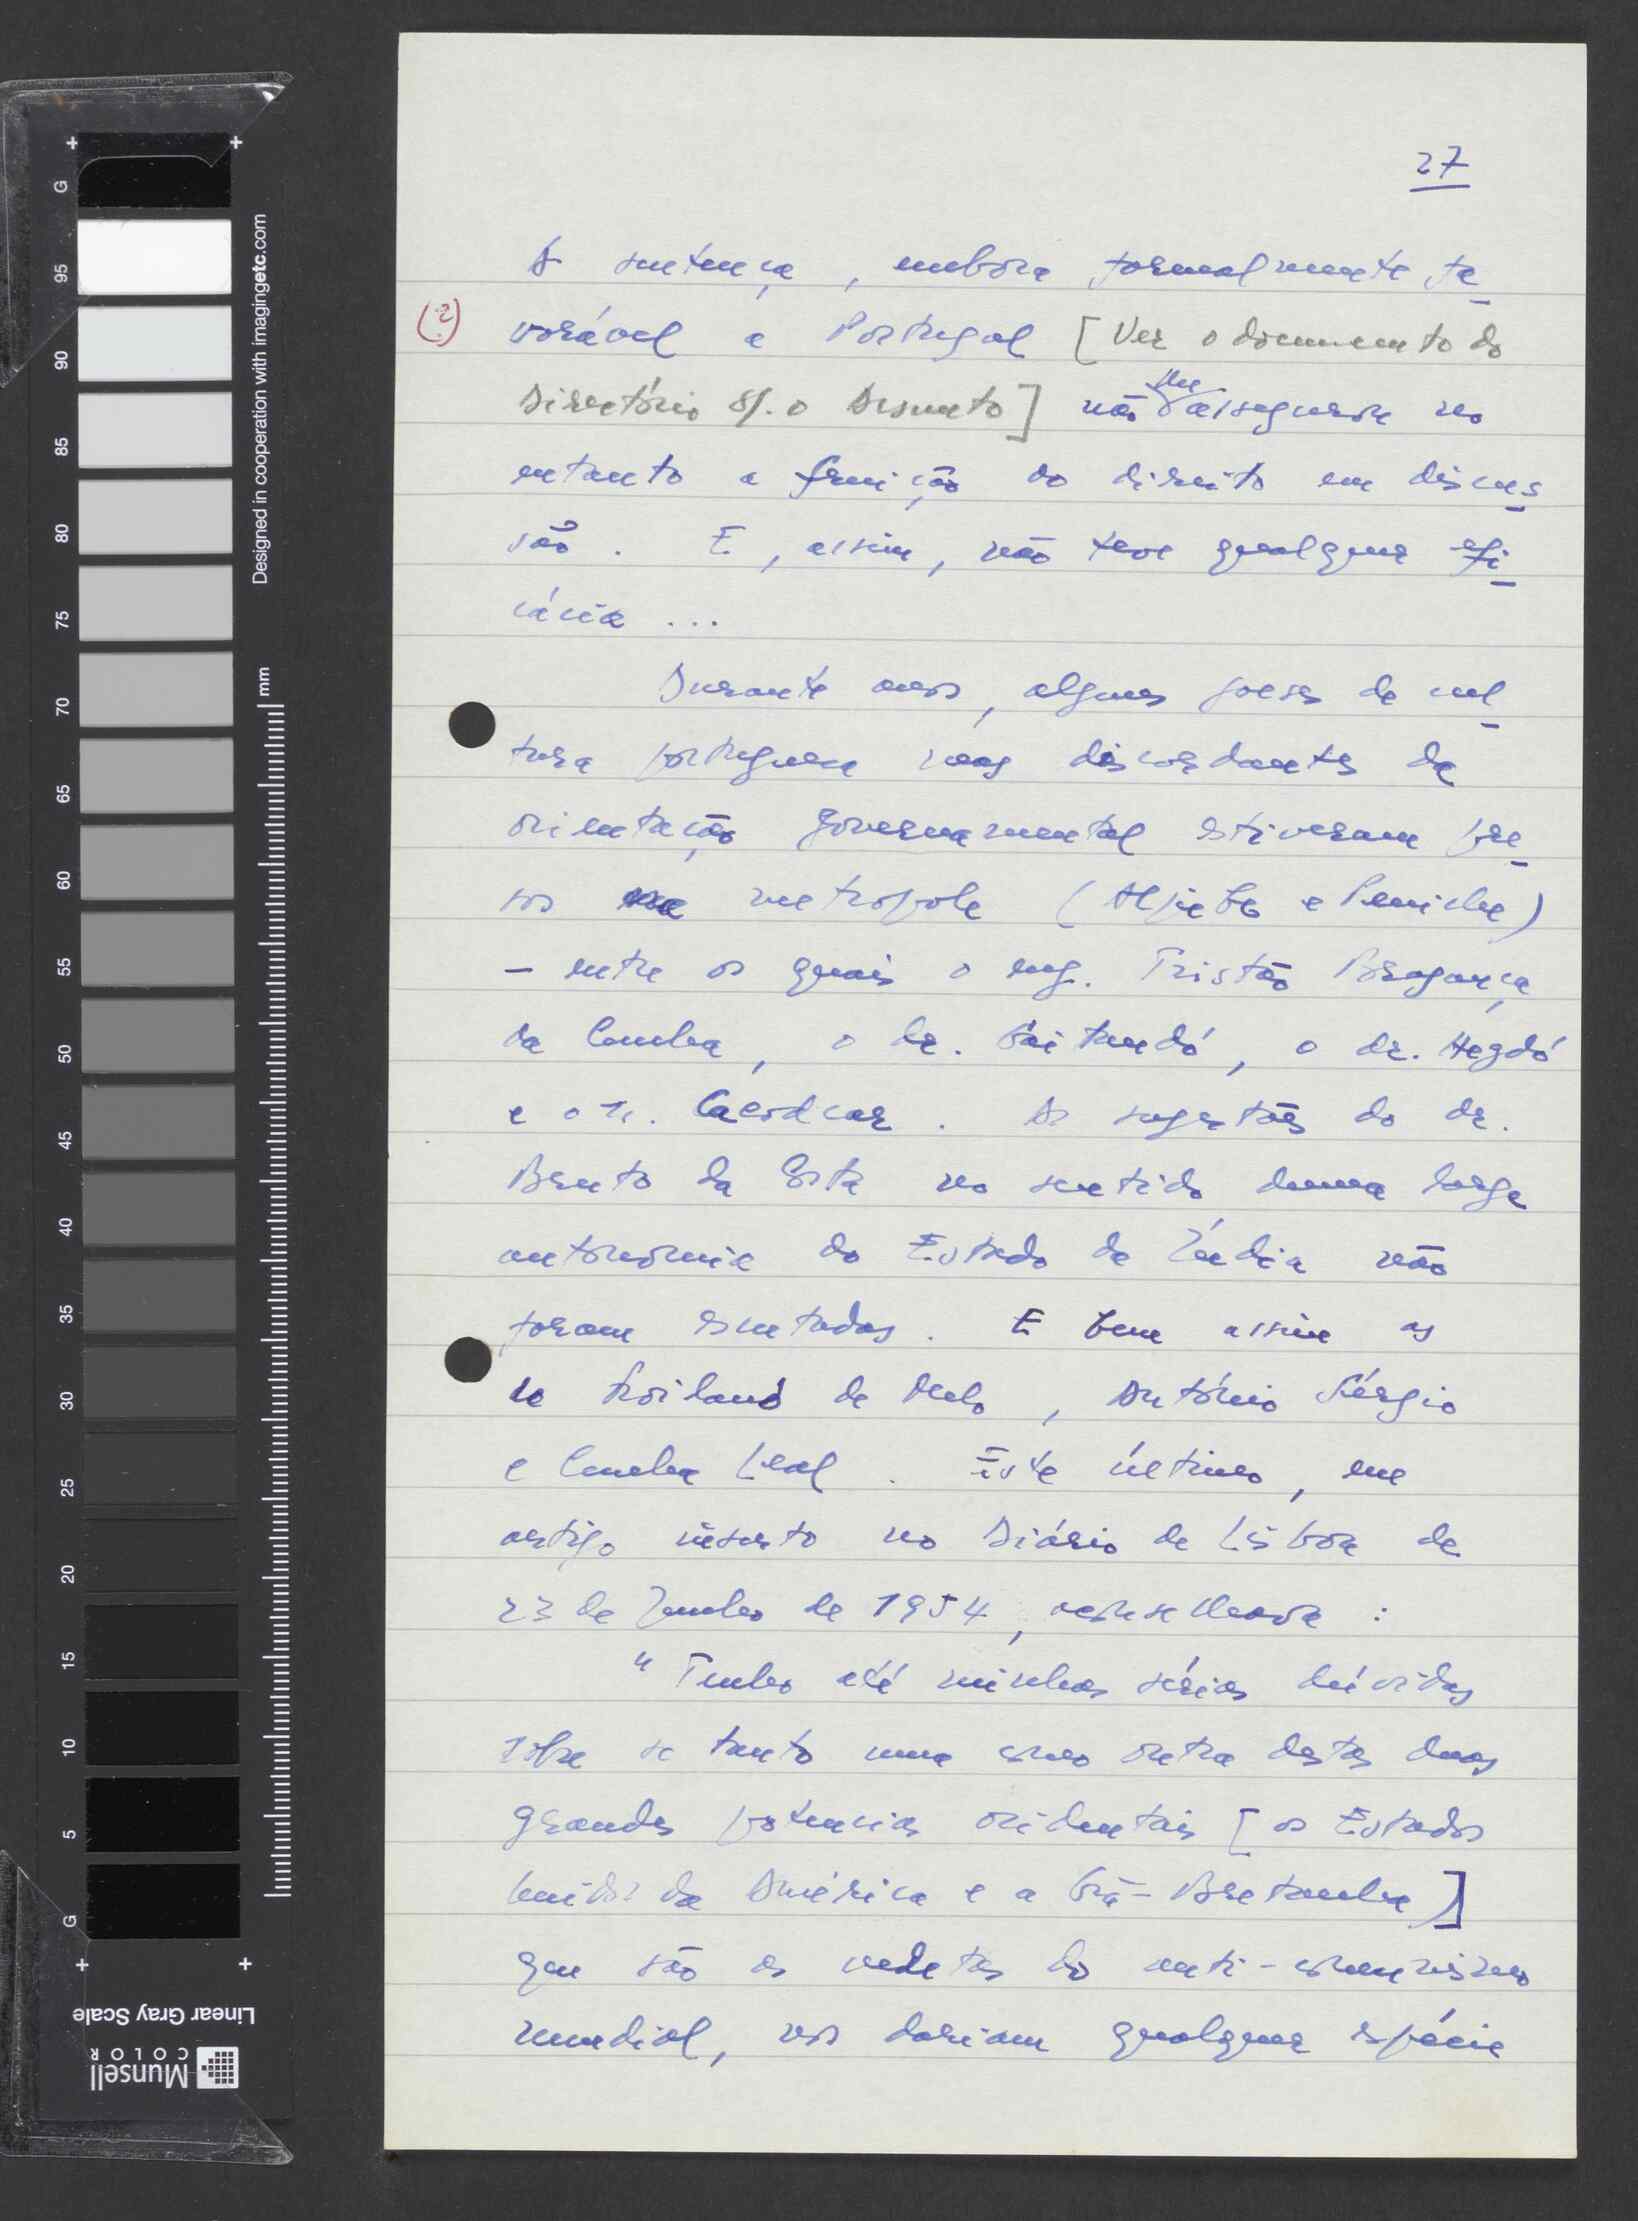 27
A sentença, embora formalmente fa
(2) vorável a Portugal [Ver o documento do
Directório s/. o Assunto] não lhe assegurou no
entanto a fruição do direito em discus
são. E, assim, não teve qualquer efi
cácia ...
Durante anos, alguns goeses de cul
tura portuguesa mas discordantes da
orientação governamental estiveram pre
sos na metropole (Aljube e Peniche)
- entre os quais o eng. Tristão Bragança
da Cunha, o dr. Gaitondó, o dr. Hegdó
e o sr. Cacodcar. As sugestões do dr.
Bento da Costa no sentido duma larga
autonomia do Estado da Índia não
foram escutadas. E bem assim as
de Froilano de Melo, António Sérgio
e Cunha Leal. Este último, em
artigo inserto no Diário de Lisboa de
23 de Junho de 1954, aconselhava:
"Tenho até minhas sérias dúvidas
sobre se tanto uma como outra destas duas
grandes potencias ocidentais [os Estados
Unidos da América e a Grã-Bretanha]
que são as vedetas do anti-comunismo
mundial, nos dariam qualquer espécie
Designed in cooperation with imagingetc.com
mm
G
95
90
85
80
75
70
65
60
55
50
45
40
35
30
25
20
15
10
5
G
Linear Gray Scale
Munsell
COLOR